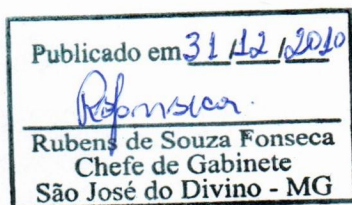 Publicado em 31/12/2010
Rfonseca.
Rubens de Souza Fonseca
Chefe de Gabinete
São José do Divino - MG